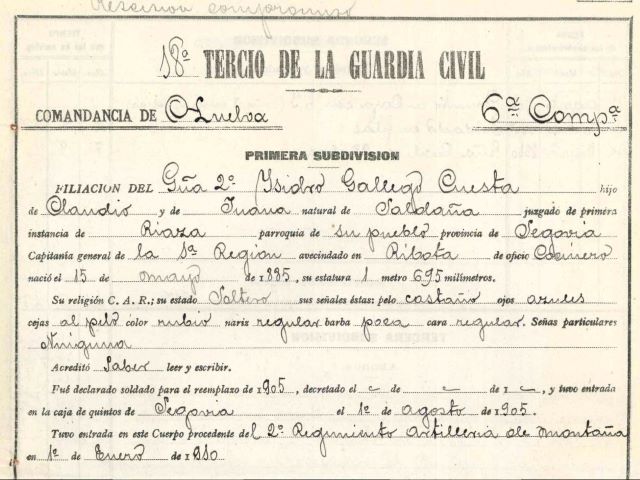 Rescision compromiso
18º TERCIO DE LA GUARDIA CIVIL
COMANDANCIA DE Huelva 6ª Compª
PRIMERA SUBDIVISION
FILIACION DEL Gña 2º Isidro Gallego Cuesta hijo
de Claudio y de Juana natural de Saldaña juzgado de primera
instancia de Riaza parroquia de su pueblo provincia de Segovia
Capitanía general de la 1ª Region avecindado en Ribota de oficio Cocinero
nació el 15 de mayo de 1885, su estatura 1 metro 695 milímetros.
Su religión C. A. R.; su estado Soltero sus señales éstas: pelo castaño ojos azules
cejas al pelo color rubio naris regular barba poca cara regular. Señas particulares
Ninguna
Acreditó Saber leer y escribir.
Fué declarado soldado para el reemplazo de 1905, decretado el - de - de 1 -, y tuvo entrada
en la caja de quintos de Segovia el 1º de agosto de 1905.
Tuvo entrada en este Cuerpo procedente del 2º Regimiento artilleria de montaña
en 1º de Enero de 1910.